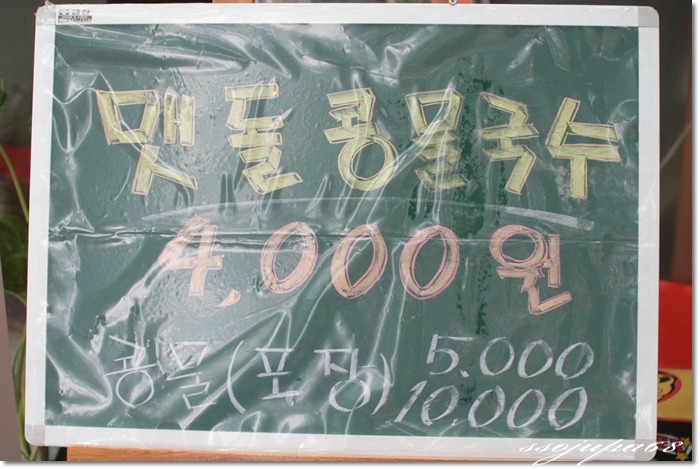 맷돌콩물국수
4,000원
콩물(포장) 5.000
10.000
ssojupa68